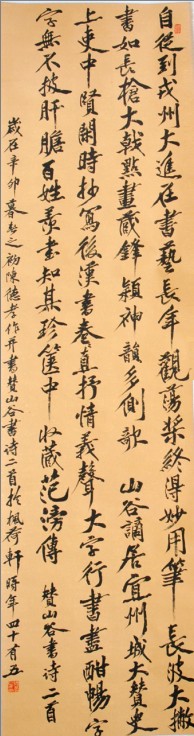 自從到戎州大進在書藝長年觀蕩槳終得妙用筆長波大撇
書如長槍大戟點畫藏鋒穎神韻多側歌 山谷謫居宜州城大贊史
上吏中賢閑時抄寫後漢書卷真抒情義聲大字行書盡酣暢字
字無不披肝膽百姓羨書知其珍篋中收藏范滂傳 贊山谷書詩二首
歲在辛卯暮春之初陳德孝作并書贊山谷書詩二首於楓荷軒時年四十有五